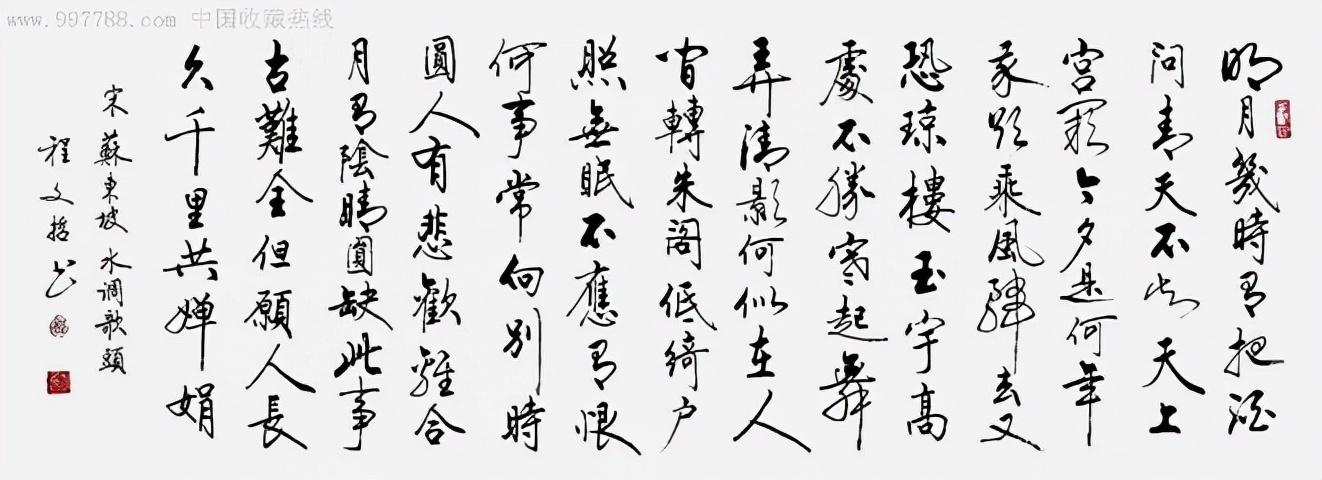 www.997788.com 中国收藏热线
明月幾時有把酒
問青天不知天上
宮闕今夕是何年
我欲乘風歸去又
恐琼樓玉宇高
處不勝寒起舞
弄清影何似在人
間轉朱閣低綺户
照無眠不應有恨
何事常向别時
圓人有悲歡離合
月有陰晴圓缺此事
古難全但願人長
久千里共婵娟
宋蘇東坡水调歌頭
程文哲书